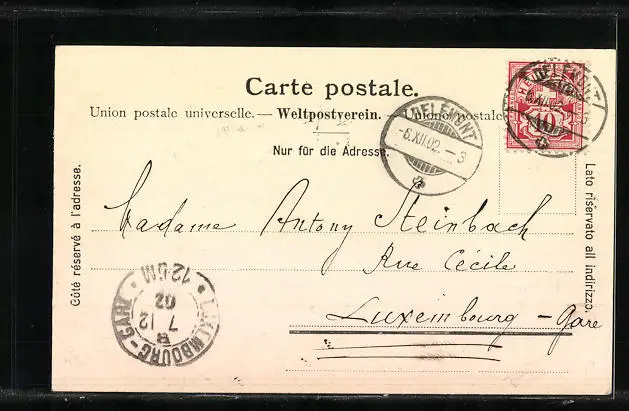 Carte postale.
Union postale universelle. — Weltpostverein. — Unione postale
Nur für die Adresse.
DELÉMONT
-6.XII.02.-3
DELÉMONT
-6.XII.02
10
Côté réservé à l'adresse.
Lato riservato all indirizzo.
Madame Antony Steinbach
Rue Cécile
Luxembourg - Gare
LUXEMBOURG-GARE
12-0M
02
7 12